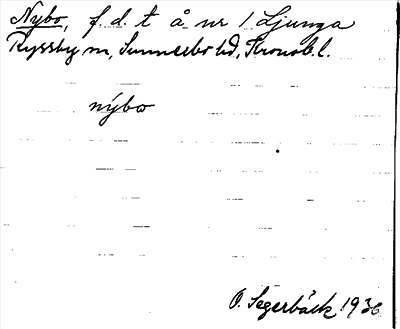 Nybo, f. d. t å nr 1 Ljunga
Ryssby sn, Sunnerbo hd, Kronob. l.
nýbo
O. Segerbäck 1936